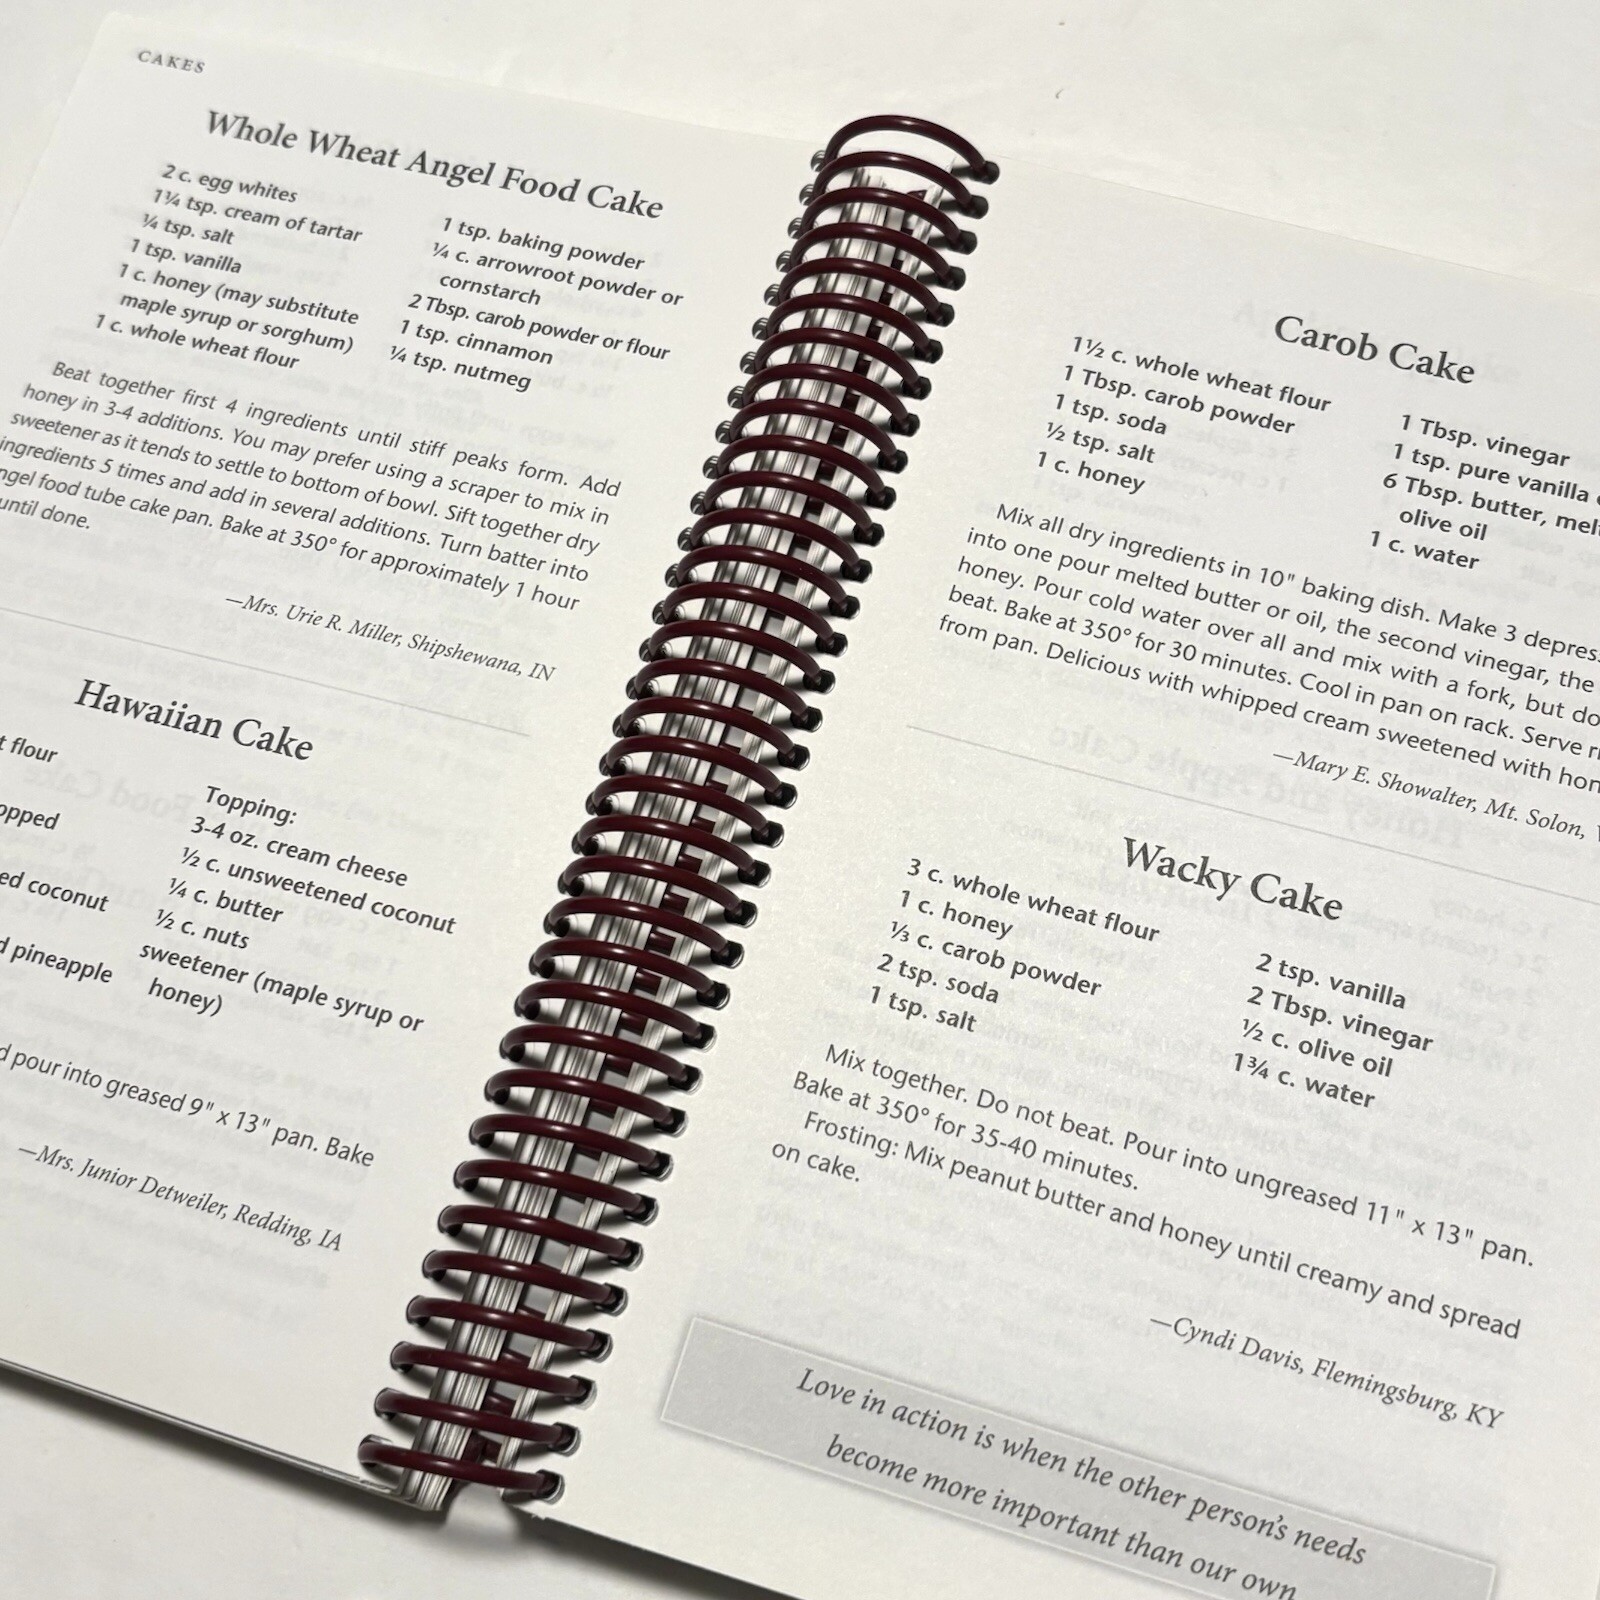 CAKES
Whole Wheat Angel Food Cake
2 c. egg whites
1¼ tsp. cream of tartar
¼ tsp. salt
1 tsp. vanilla
1 c. honey (may substitute
maple syrup or sorghum)
1 c. whole wheat flour
1 tsp. baking powder
¼ c. arrowroot powder or
cornstarch
2 Tbsp. carob powder or flour
1 tsp. cinnamon
¼ tsp. nutmeg
Beat together first 4 ingredients until stiff peaks form. Add
honey in 3-4 additions. You may prefer using a scraper to mix in
sweetener as it tends to settle to bottom of bowl. Sift together dry
ingredients 5 times and add in several additions. Turn batter into
ngel food tube cake pan. Bake at 350° for approximately 1 hour
until done.
—Mrs. Urie R. Miller, Shipshewana, IN
Hawaiian Cake
t flour
opped
ed coconut
d pineapple
Topping:
3-4 oz. cream cheese
½ c. unsweetened coconut
¼ c. butter
½ c. nuts
sweetener (maple syrup or
honey)
d pour into greased 9" x 13" pan. Bake
—Mrs. Junior Detweiler, Redding, IA
Carob Cake
1½ c. whole wheat flour
1 Tbsp. carob powder
1 tsp. soda
½ tsp. salt
1 c. honey
1 Tbsp. vinegar
1 tsp. pure vanilla
6 Tbsp. butter, mel
olive oil
1 c. water
Mix all dry ingredients in 10" baking dish. Make 3 depress
into one pour melted butter or oil, the second vinegar, the
honey. Pour cold water over all and mix with a fork, but do
beat. Bake at 350° for 30 minutes. Cool in pan on rack. Serve ri
from pan. Delicious with whipped cream sweetened with hon
—Mary E. Showalter, Mt. Solon,
Wacky Cake
3 c. whole wheat flour
1 c. honey
⅓ c. carob powder
2 tsp. soda
1 tsp. salt
2 tsp. vanilla
2 Tbsp. vinegar
½ c. olive oil
1¾ c. water
Mix together. Do not beat. Pour into ungreased 11" x 13" pan.
Bake at 350° for 35-40 minutes.
Frosting: Mix peanut butter and honey until creamy and spread
on cake.
—Cyndi Davis, Flemingsburg, KY
Love in action is when the other person's needs
become more important than our own